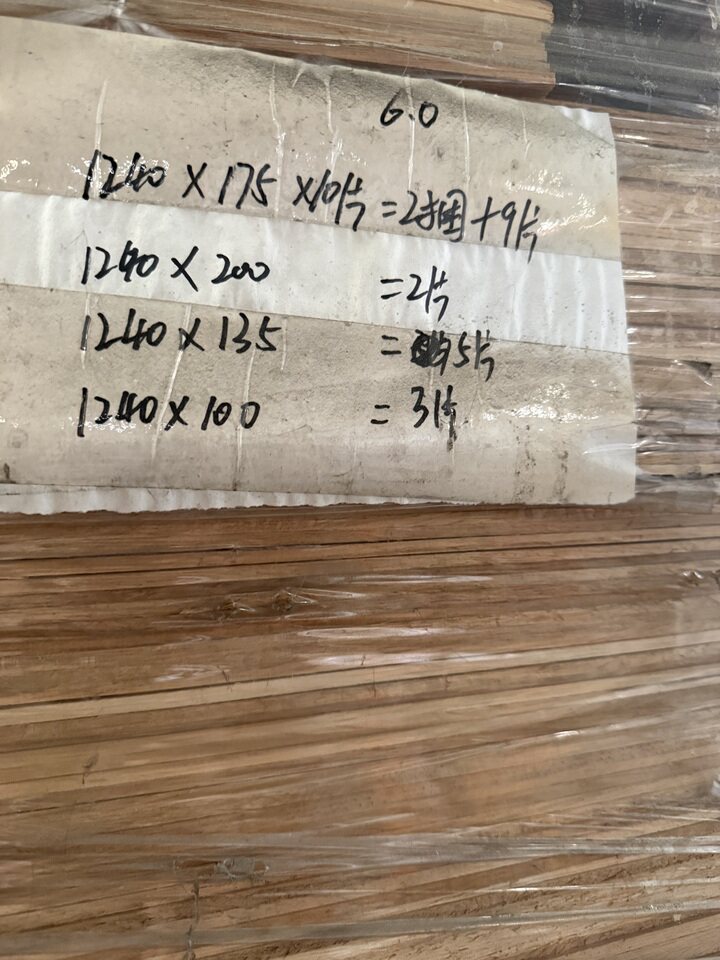 6.0
1240×175 ×10片=2捆+9片
1240×200 =2片
1240×135 =5片
1240×100 =3片